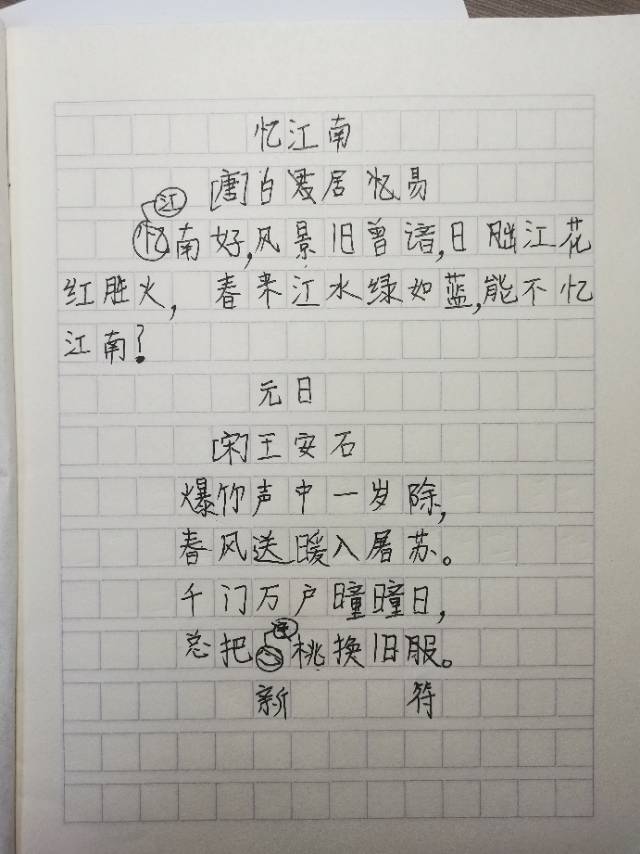 忆江南
[唐]白居忆易
江
忆南好,风景旧曾谙,日出江花
红胜火, 春来江水绿如蓝,能不忆
江南?
元日
[宋]王安石
爆竹声中一岁除,
春风送暖入屠苏。
千门万户曈曈日,
总把桃换旧服。
新 符